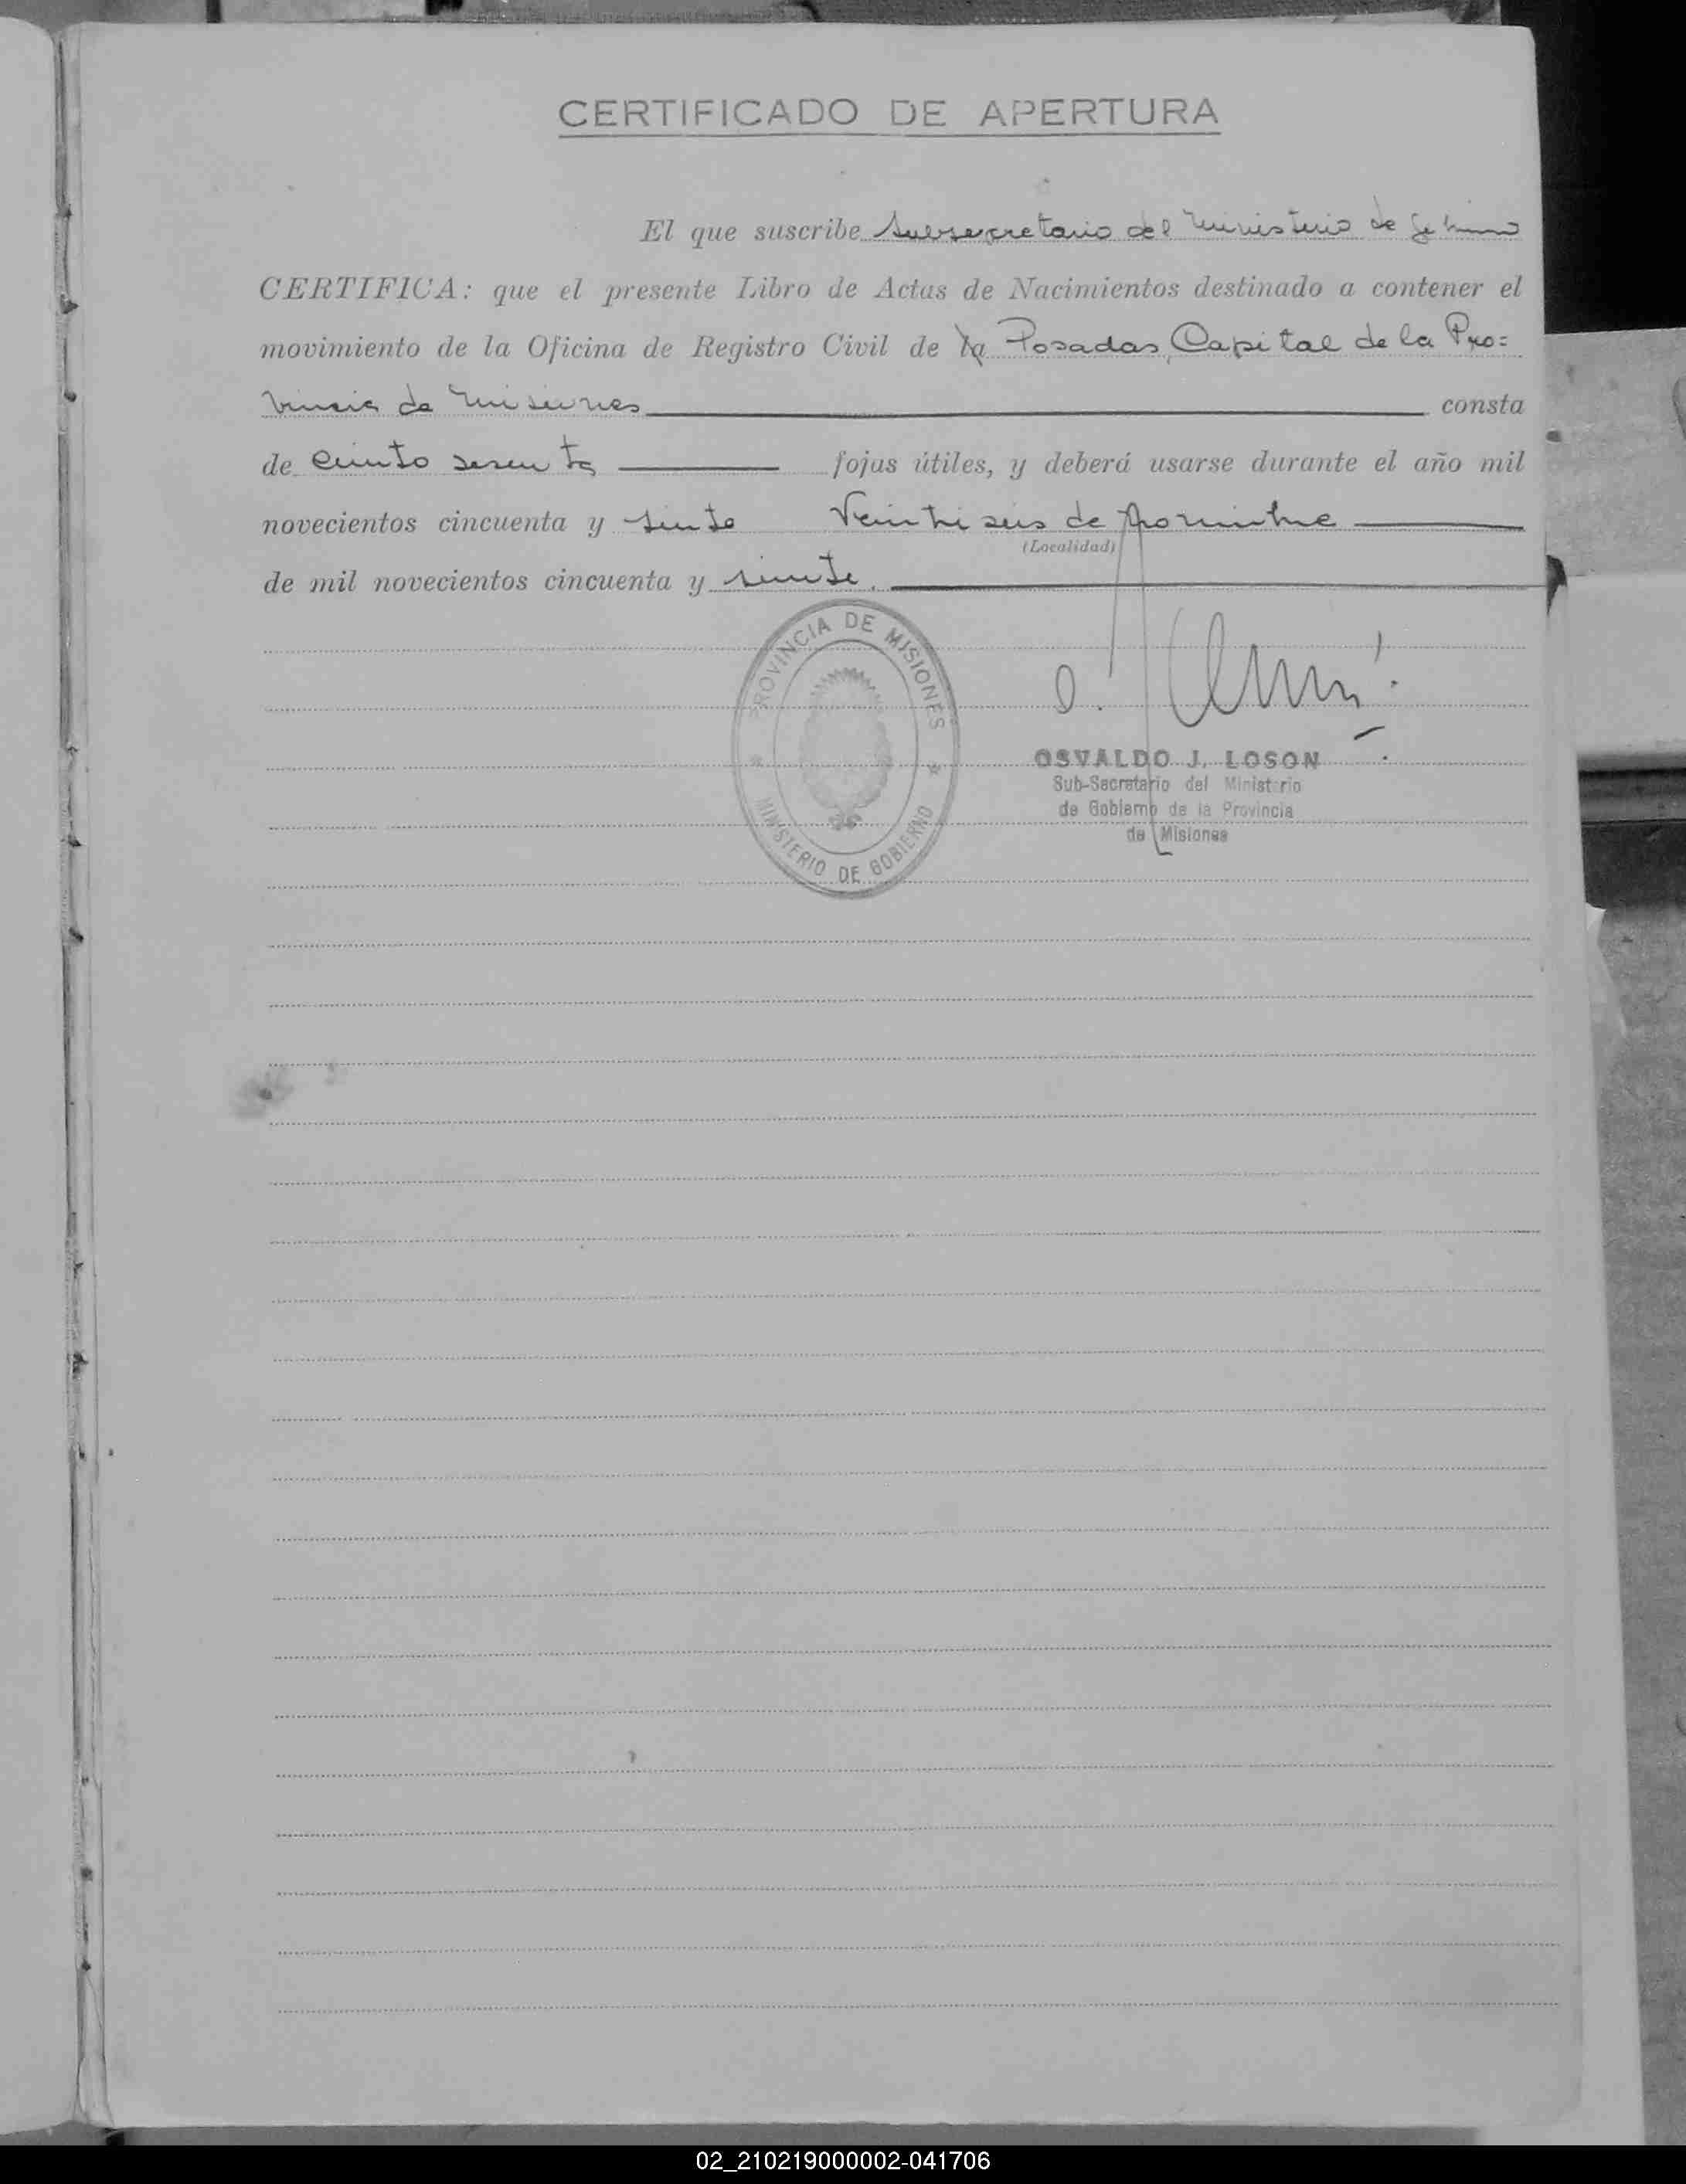 CERTIFICADO DE APERTURA
El que suscribe Subsecretario del Ministerio de Gobierno
CERTIFICA: que el presente Libro de Actas de Nacimientos destinado a contener el
movimiento de la Oficina de Registro Civil de la Posadas, Capital de la Pro=
vincia de Misiones consta
de ciento sesenta fojas útiles, y deberá usarse durante el año mil
novecientos cincuenta y siete Veintiseis de Noviembre
(Localidad)
de mil novecientos cincuenta y siete.
PROVINCIA DE MISIONES
MINISTERIO DE GOBIERNO
OSVALDO J. LOSON
Sub-Secretario del Ministerio
de Gobierno de la Provincia
de Misiones
02_210219000002-041706